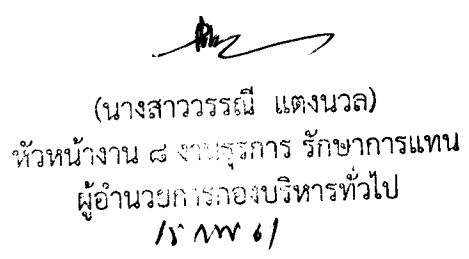 (นางสาววรรณี แตงนวล)
หัวหน้างาน ๘ งานธุรการ รักษาการแทน
ผู้อำนวยการกองบริหารทั่วไป
กพ 61